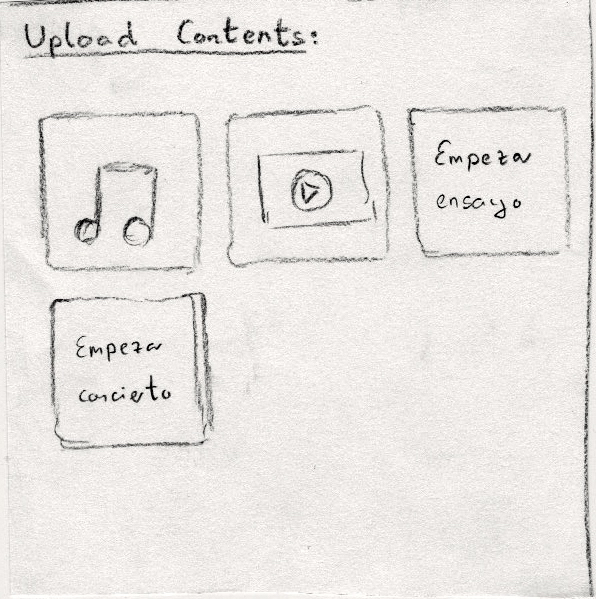 Upload Contents:
Empezar
ensayo
Empezar
concierto